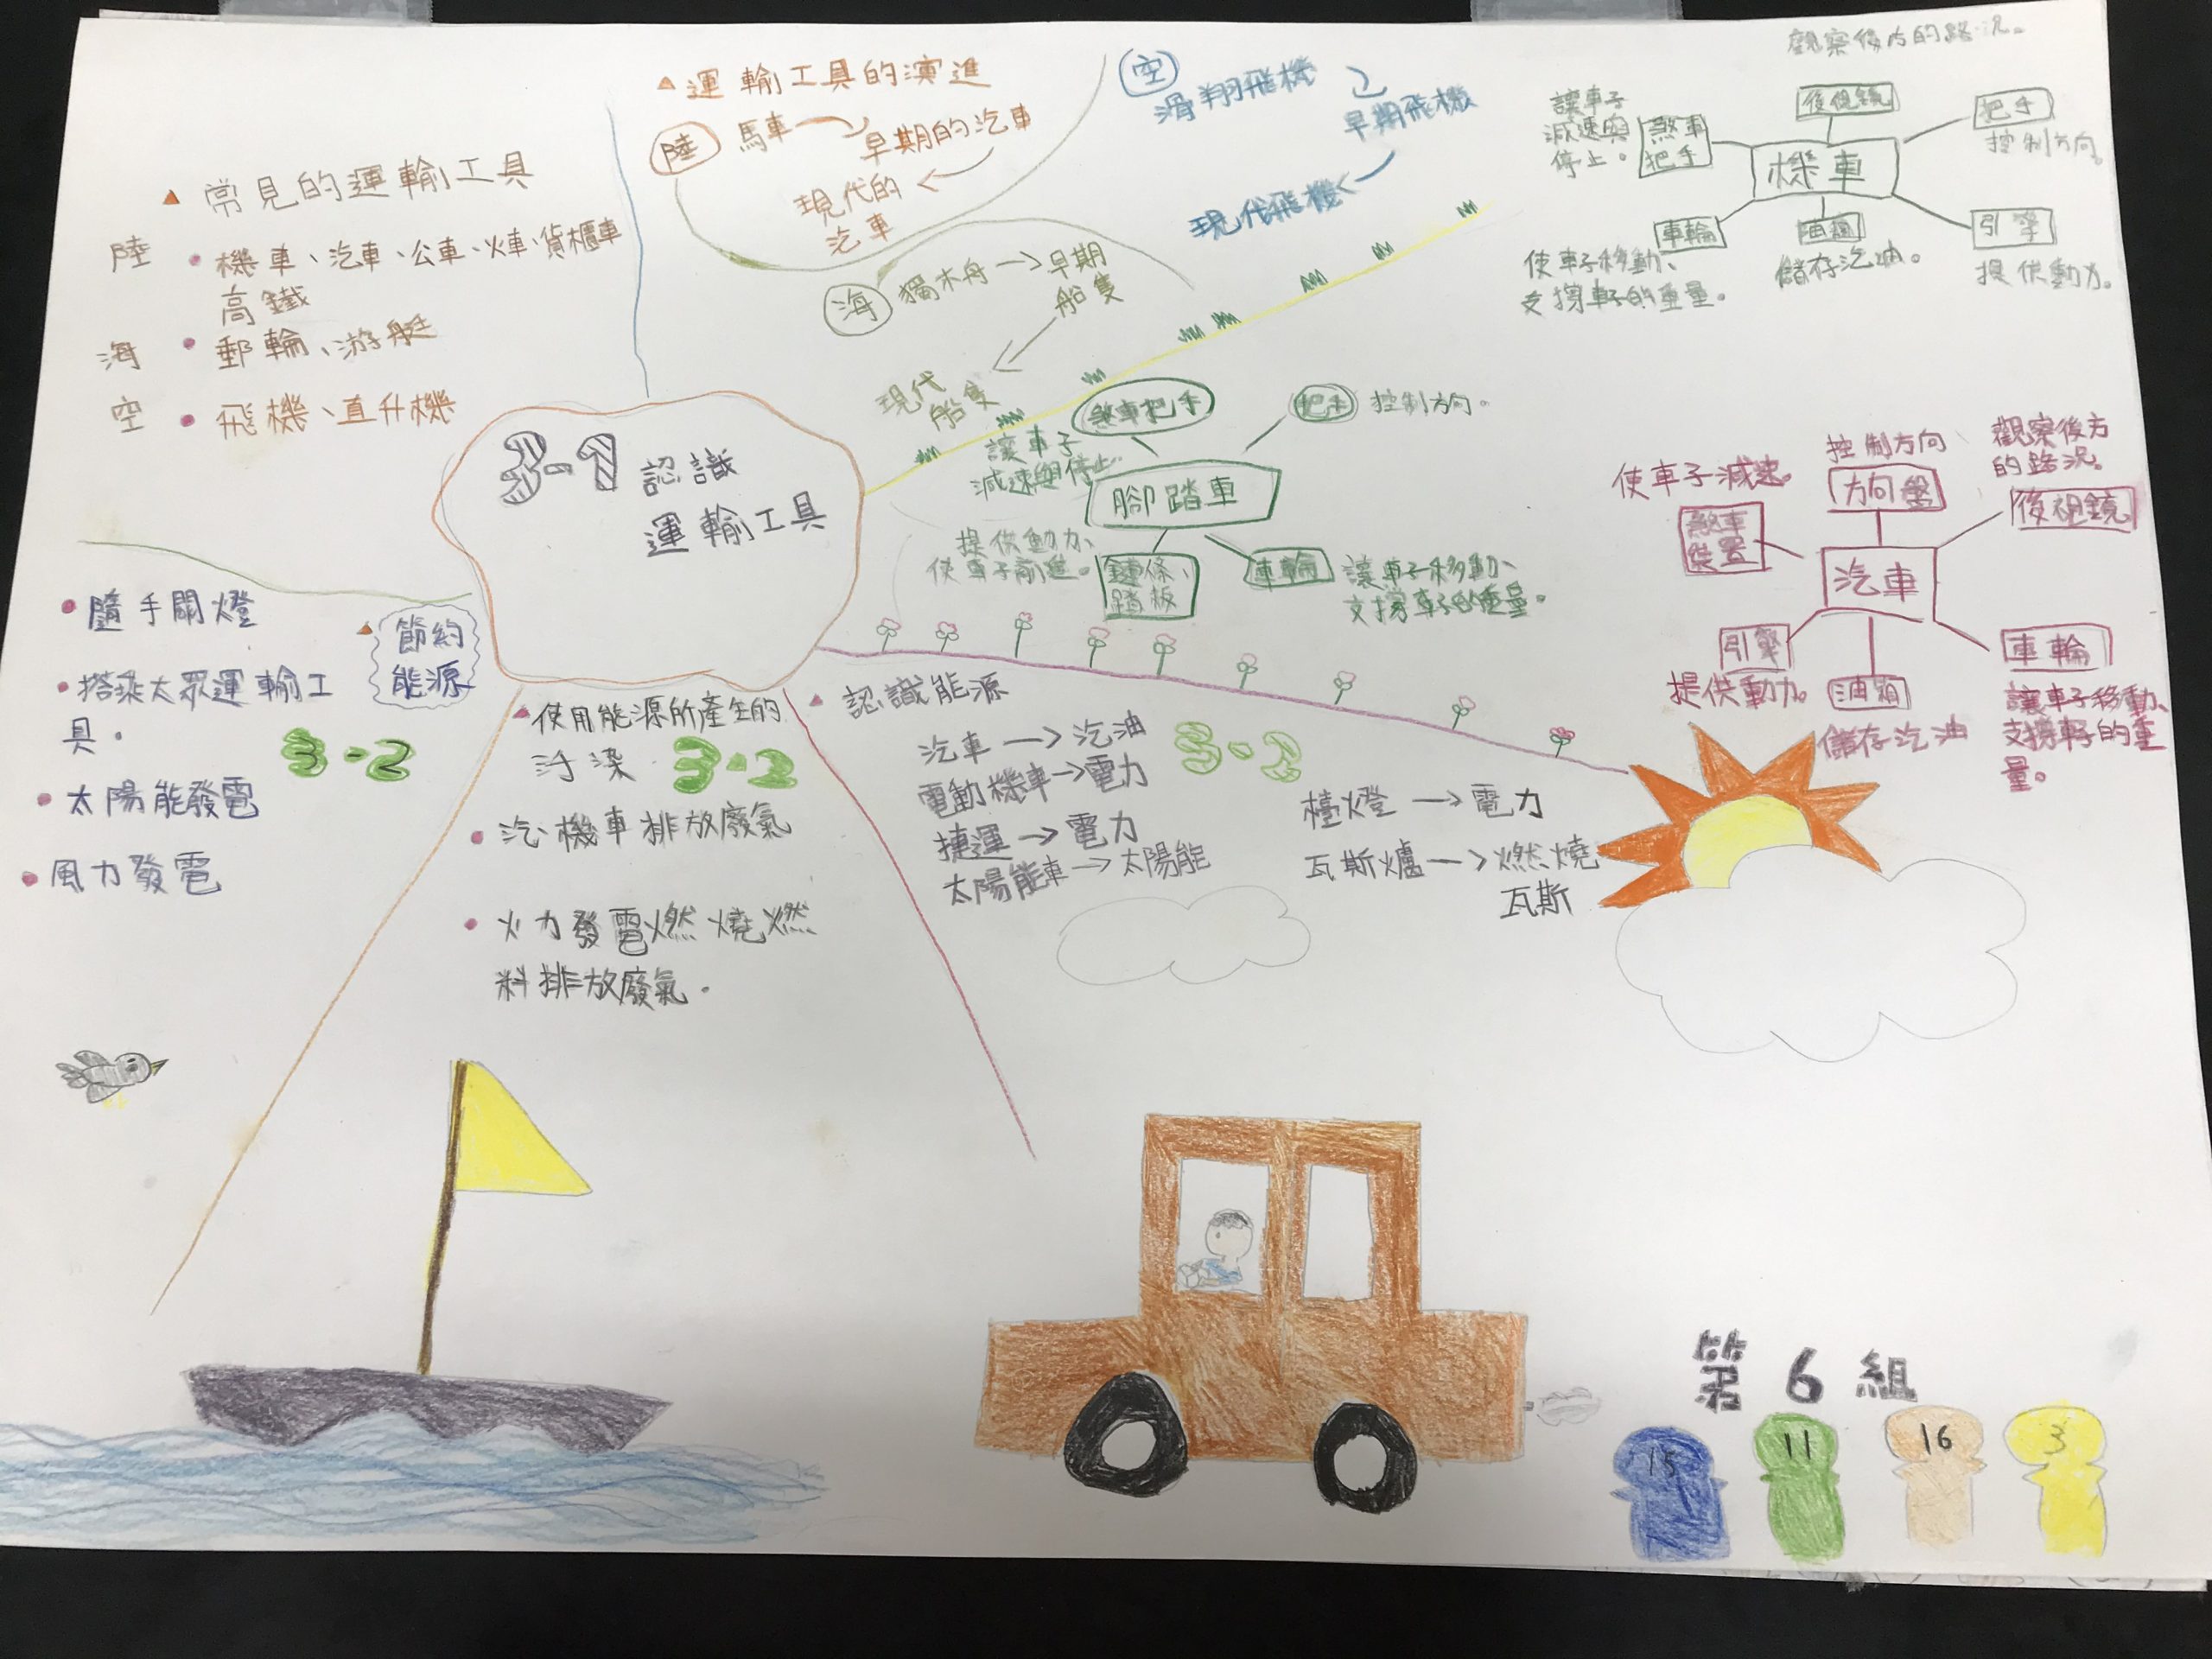 3-1 認識
運輸工具
常見的運輸工具
陸 機車、汽車、公車、火車、貨櫃車
高鐵
海 郵輪、游艇
空 飛機、直升機
運輸工具的演進
陸 馬車
早期的汽車
現代的
汽車
空
滑翔飛機
早期飛機
現代飛機
海 獨木舟 → 早期
船隻
現代
船隻
機車
觀察後方的路況。
把手
控制方向。
引擎
提供動力。
油箱
儲存汽油。
車輪
使車子移動、
支撐車子的重量。
煞車
把手
讓車子
減速與
停止。
腳踏車
煞車把手
讓車子
減速與停止。
把手 控制方向。
鏈條、
踏板
提供動力、
使車子前進。
車輪
讓車子移動、
支撐車子的重量。
汽車
方向盤
控制方向
後視鏡
觀察後方
的路況。
煞車
裝置
使車子減速。
引擎
提供動力。
油箱
儲存汽油
車輪
讓車子移動、
支撐車子的重
量。
認識能源
3-2
汽車 → 汽油
電動機車 → 電力
捷運 → 電力
太陽能車 → 太陽能
檯燈 → 電力
瓦斯爐 → 燃燒
瓦斯
使用能源所產生的
汙染
3-2
汽、機車排放廢氣
火力發電燃燒燃
料排放廢氣。
節約
能源
3-2
隨手關燈
搭乘大眾運輸工
具。
太陽能發電
風力發電
第6組
15 11 16 3